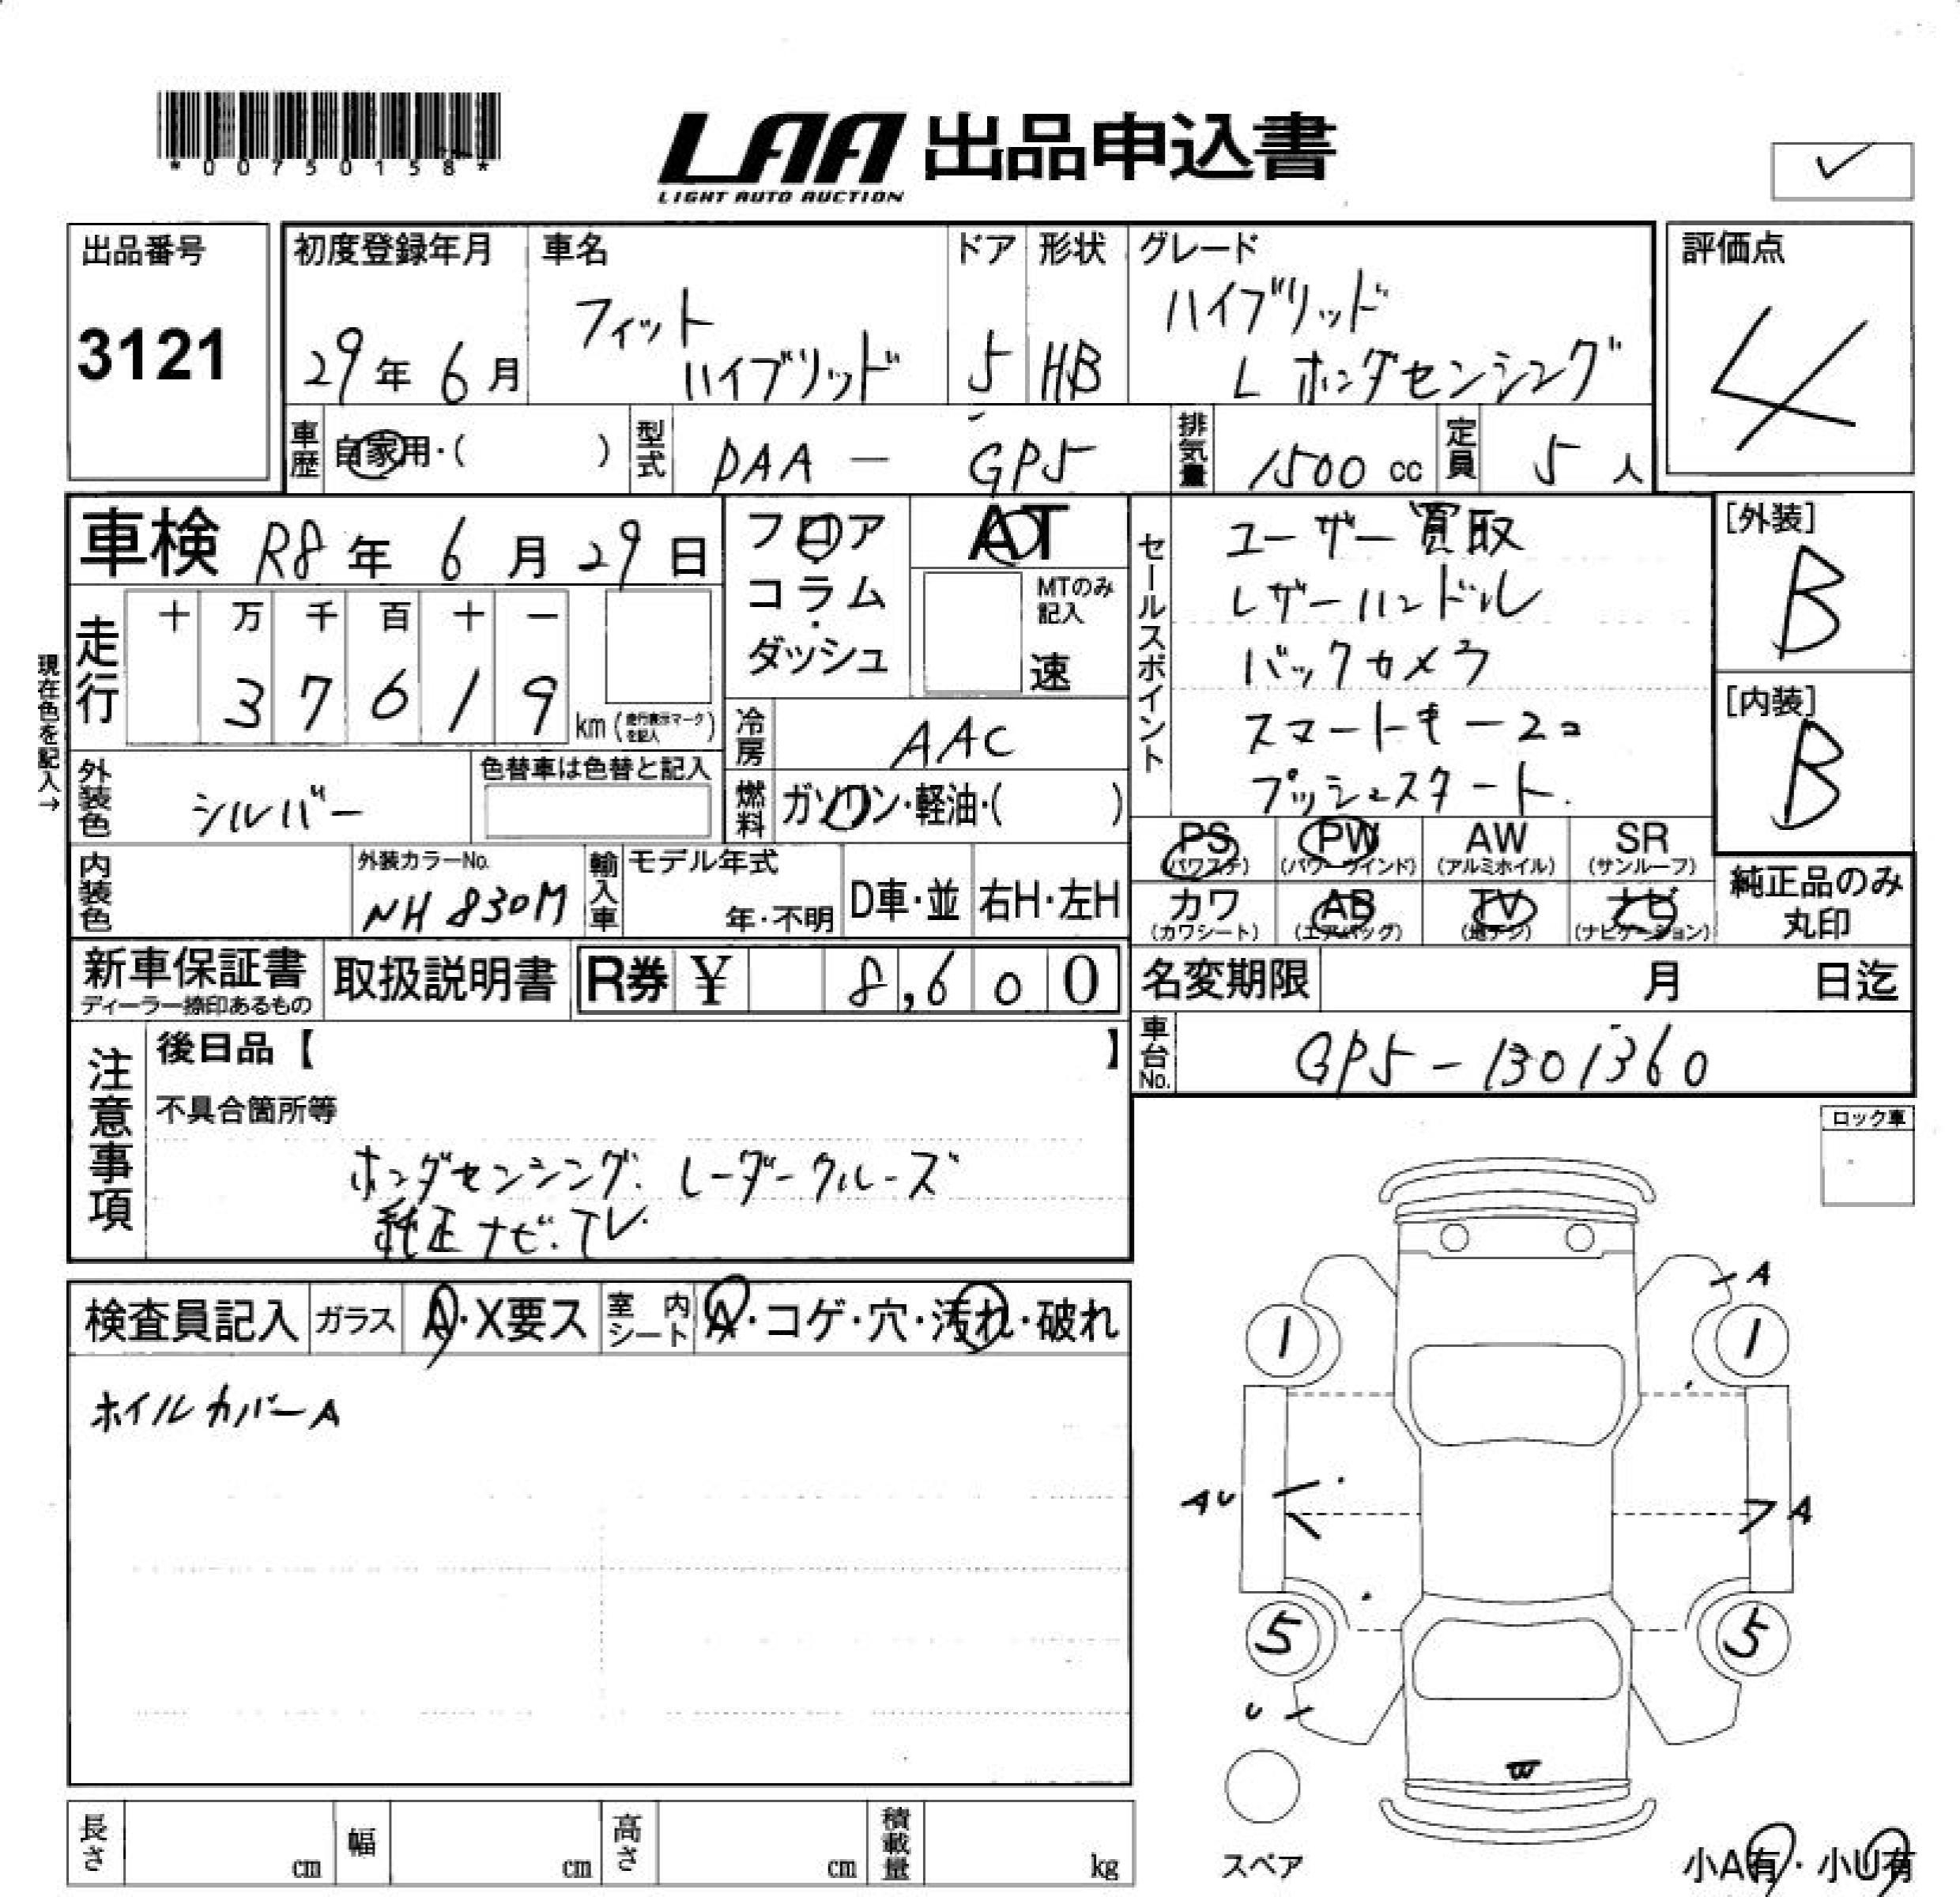 *00750158*
LAA 出品申込書
LIGHT AUTO AUCTION
出品番号
3121
初度登録年月
29年 6月
車名
フィット
ハイブリッド
ドア
5
形状
HB
グレード
ハイブリッド
L ホンダセンシング
評価点
4
車歴
自家用・( )
型式
DAA - GP5
排気量
1500 cc
定員
5 人
車検 R8年 6月 29日
走行
十 万 千 百 十 一
3 7 6 1 9
km (走行表示マークを記入)
現在色を記入→
フロア
コラム
・
ダッシュ
AT
MTのみ
記入
速
冷房
AAC
燃料
ガソリン・軽油・( )
セールスポイント
ユーザー買取
レザーハンドル
バックカメラ
スマートキー2コ
プッシュスタート.
[外装]
B
[内装]
B
外装色
シルバー
色替車は色替と記入
内装色
外装カラーNo.
NH 830M
輸入車
モデル年式
年・不明
D車・並
右H・左H
PS
(パワステ)
PW
(パワーウインド)
AW
(アルミホイル)
SR
(サンルーフ)
カワ
(カワシート)
AB
(エアバッグ)
TV
(地デジ)
ナビ
(ナビゲーション)
純正品のみ
丸印
新車保証書
ディーラー捺印あるもの
取扱説明書
R券 ¥ 8,600
名変期限 月 日迄
車台No.
GP5-1301360
注意事項
後日品【 】
不具合箇所等
ホンダセンシング. レーダークルーズ
純正ナビ.TV.
ロック車
検査員記入
ガラス
A・X要ス
室内シート
A・コゲ・穴・汚れ・破れ
ホイルカバーA
A
1
1
AU
A
5
5
U
スペア
長さ cm
幅 cm
高さ cm
積載量 kg
小A有・小U有